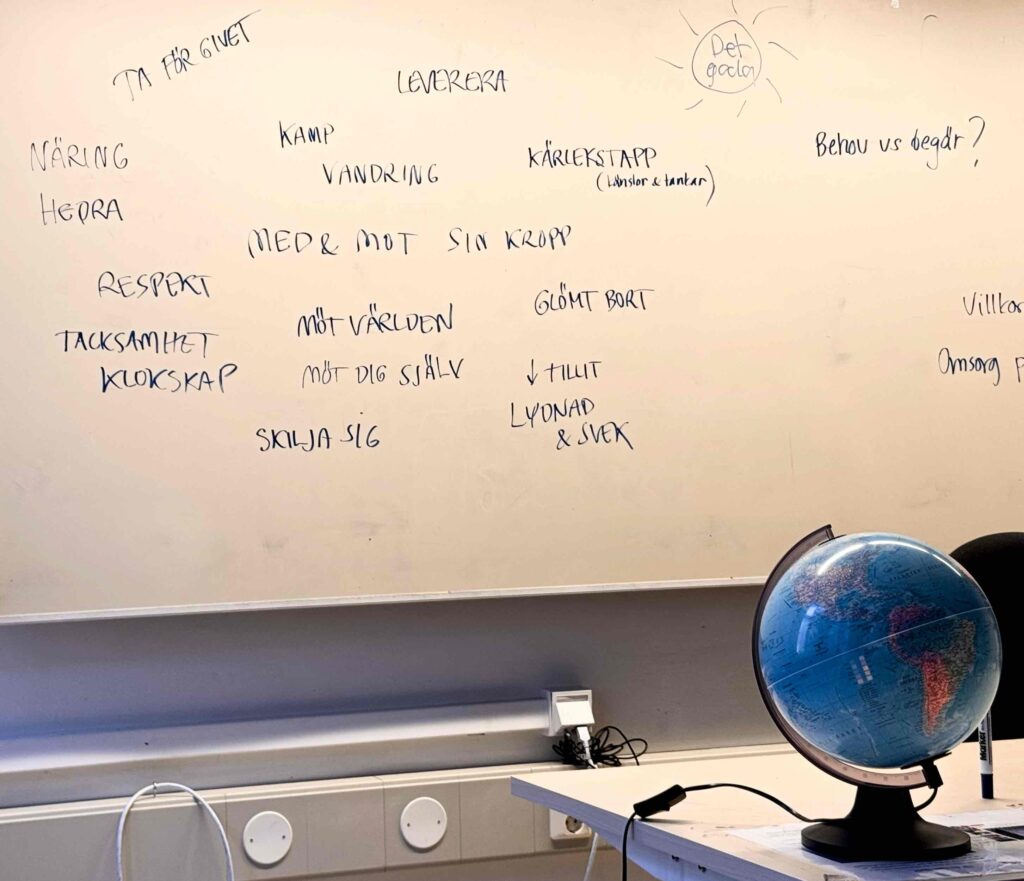 TA FÖR GIVET
LEVERERA
Det
goda
NÄRING
HEDRA
KAMP
VANDRING
KÄRLEKSTAPP
(känslor & tankar)
Behov vs begär?
MED & MOT SIN KROPP
RESPEKT
TACKSAMHET
KLOKSKAP
MÖT VÄRLDEN
MÖT DIG SJÄLV
SKILJA SIG
GLÖMT BORT
↓ TILLIT
LYDNAD
& SVEK
Villkor
Omsorg p